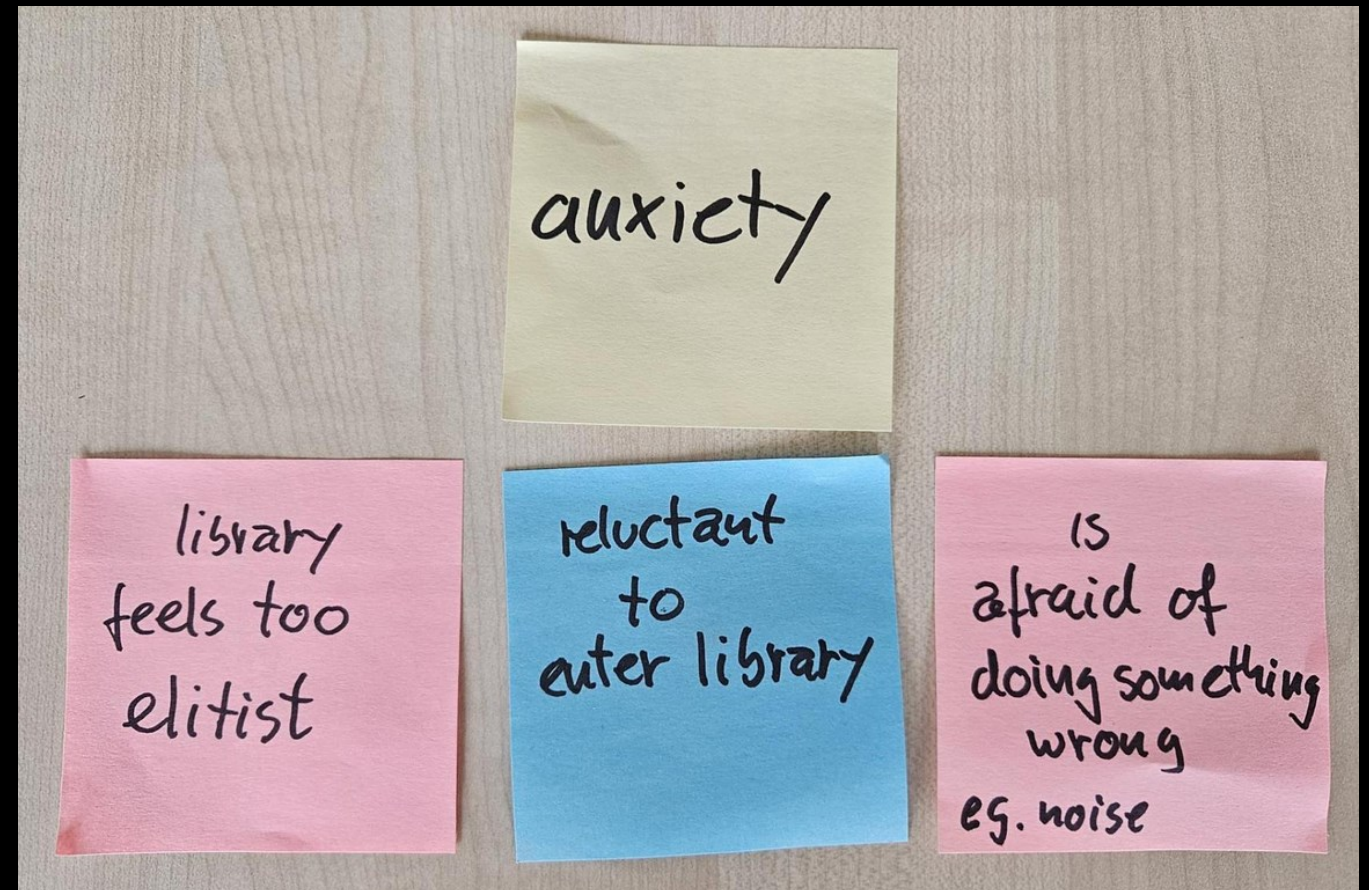 anxiety
library
feels too
elitist
reluctant
to
enter library
is
afraid of
doing something
wrong
eg. noise